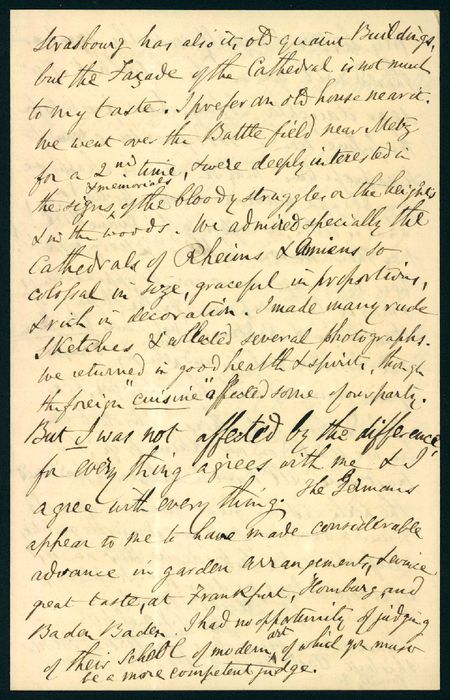 Strasbourg has also its old quaint Buildings,
but the Façade of the Cathedral is not much
to my taste. I prefer an old house near it.
We went over the Battle field near Metz
for a 2nd time, & were deeply interested in
& memorials
the signs, of the bloody struggles on the heights
& in the woods. We admired specially the
Cathedrals of Rheims & Amiens so
colossal in size, graceful in proportions,
& rich in decoration. I made many rude
sketches & collected several photographs.
We returned in good health & spirits, though
the foreign "cuisine" affected some of our party.
But I was not affected by the difference,
for every thing agrees with me & I
agree with every thing. The Germans
appear to me to have made considerable
advance in garden arrangements, & evince
great taste, at Frankfurt, Homburg and
Baden Baden. I had no opportunity of judging
of their School of modern art of which you must
be a more competent judge.